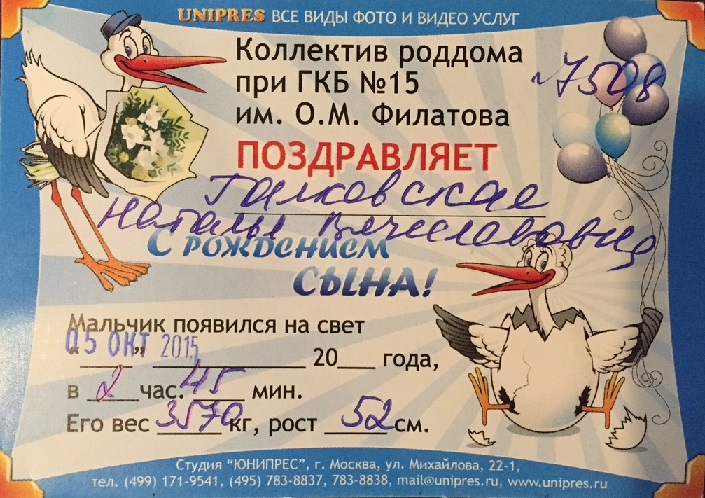 UNIPRES ВСЕ ВИДЫ ФОТО И ВИДЕО УСЛУГ
Коллектив роддома
при ГКБ №15
№7508
им. О.М. Филатова
ПОЗДРАВЛЯЕТ
Галковская
Наталья Вячеславовна
С РОЖДЕНИЕМ
СЫНА!
Мальчик появился на свет
"05 ОКТ" 2015 20 года,
в 2 час. 45 мин.
Его вес 3570 кг, рост 52 см.
Студия "ЮНИПРЕС", г. Москва, ул. Михайлова, 22-1,
тел. (499) 171-9541, (495) 783-8837, 783-8838, mail@unipres.ru, www.unipres.ru